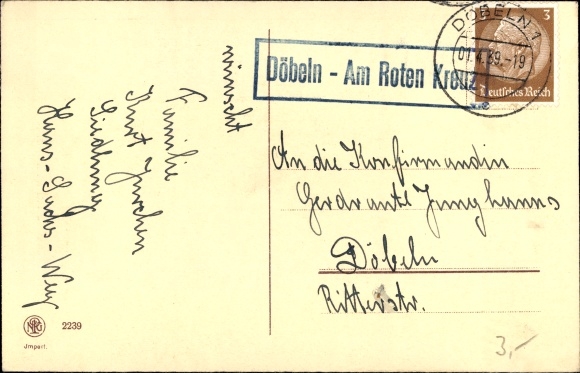 wünscht
Familie
Kurt Jurchen
Siedlung
Hans-Sachs-Weg
2239
Jmport.
DÖBELN 1
01.4.39.-19
3
Deutsches Reich
Döbeln - Am Roten Kreuz
An die Konfirmandin
Gerdraute Junghanns
Döbeln
Ritterstr.
3,-